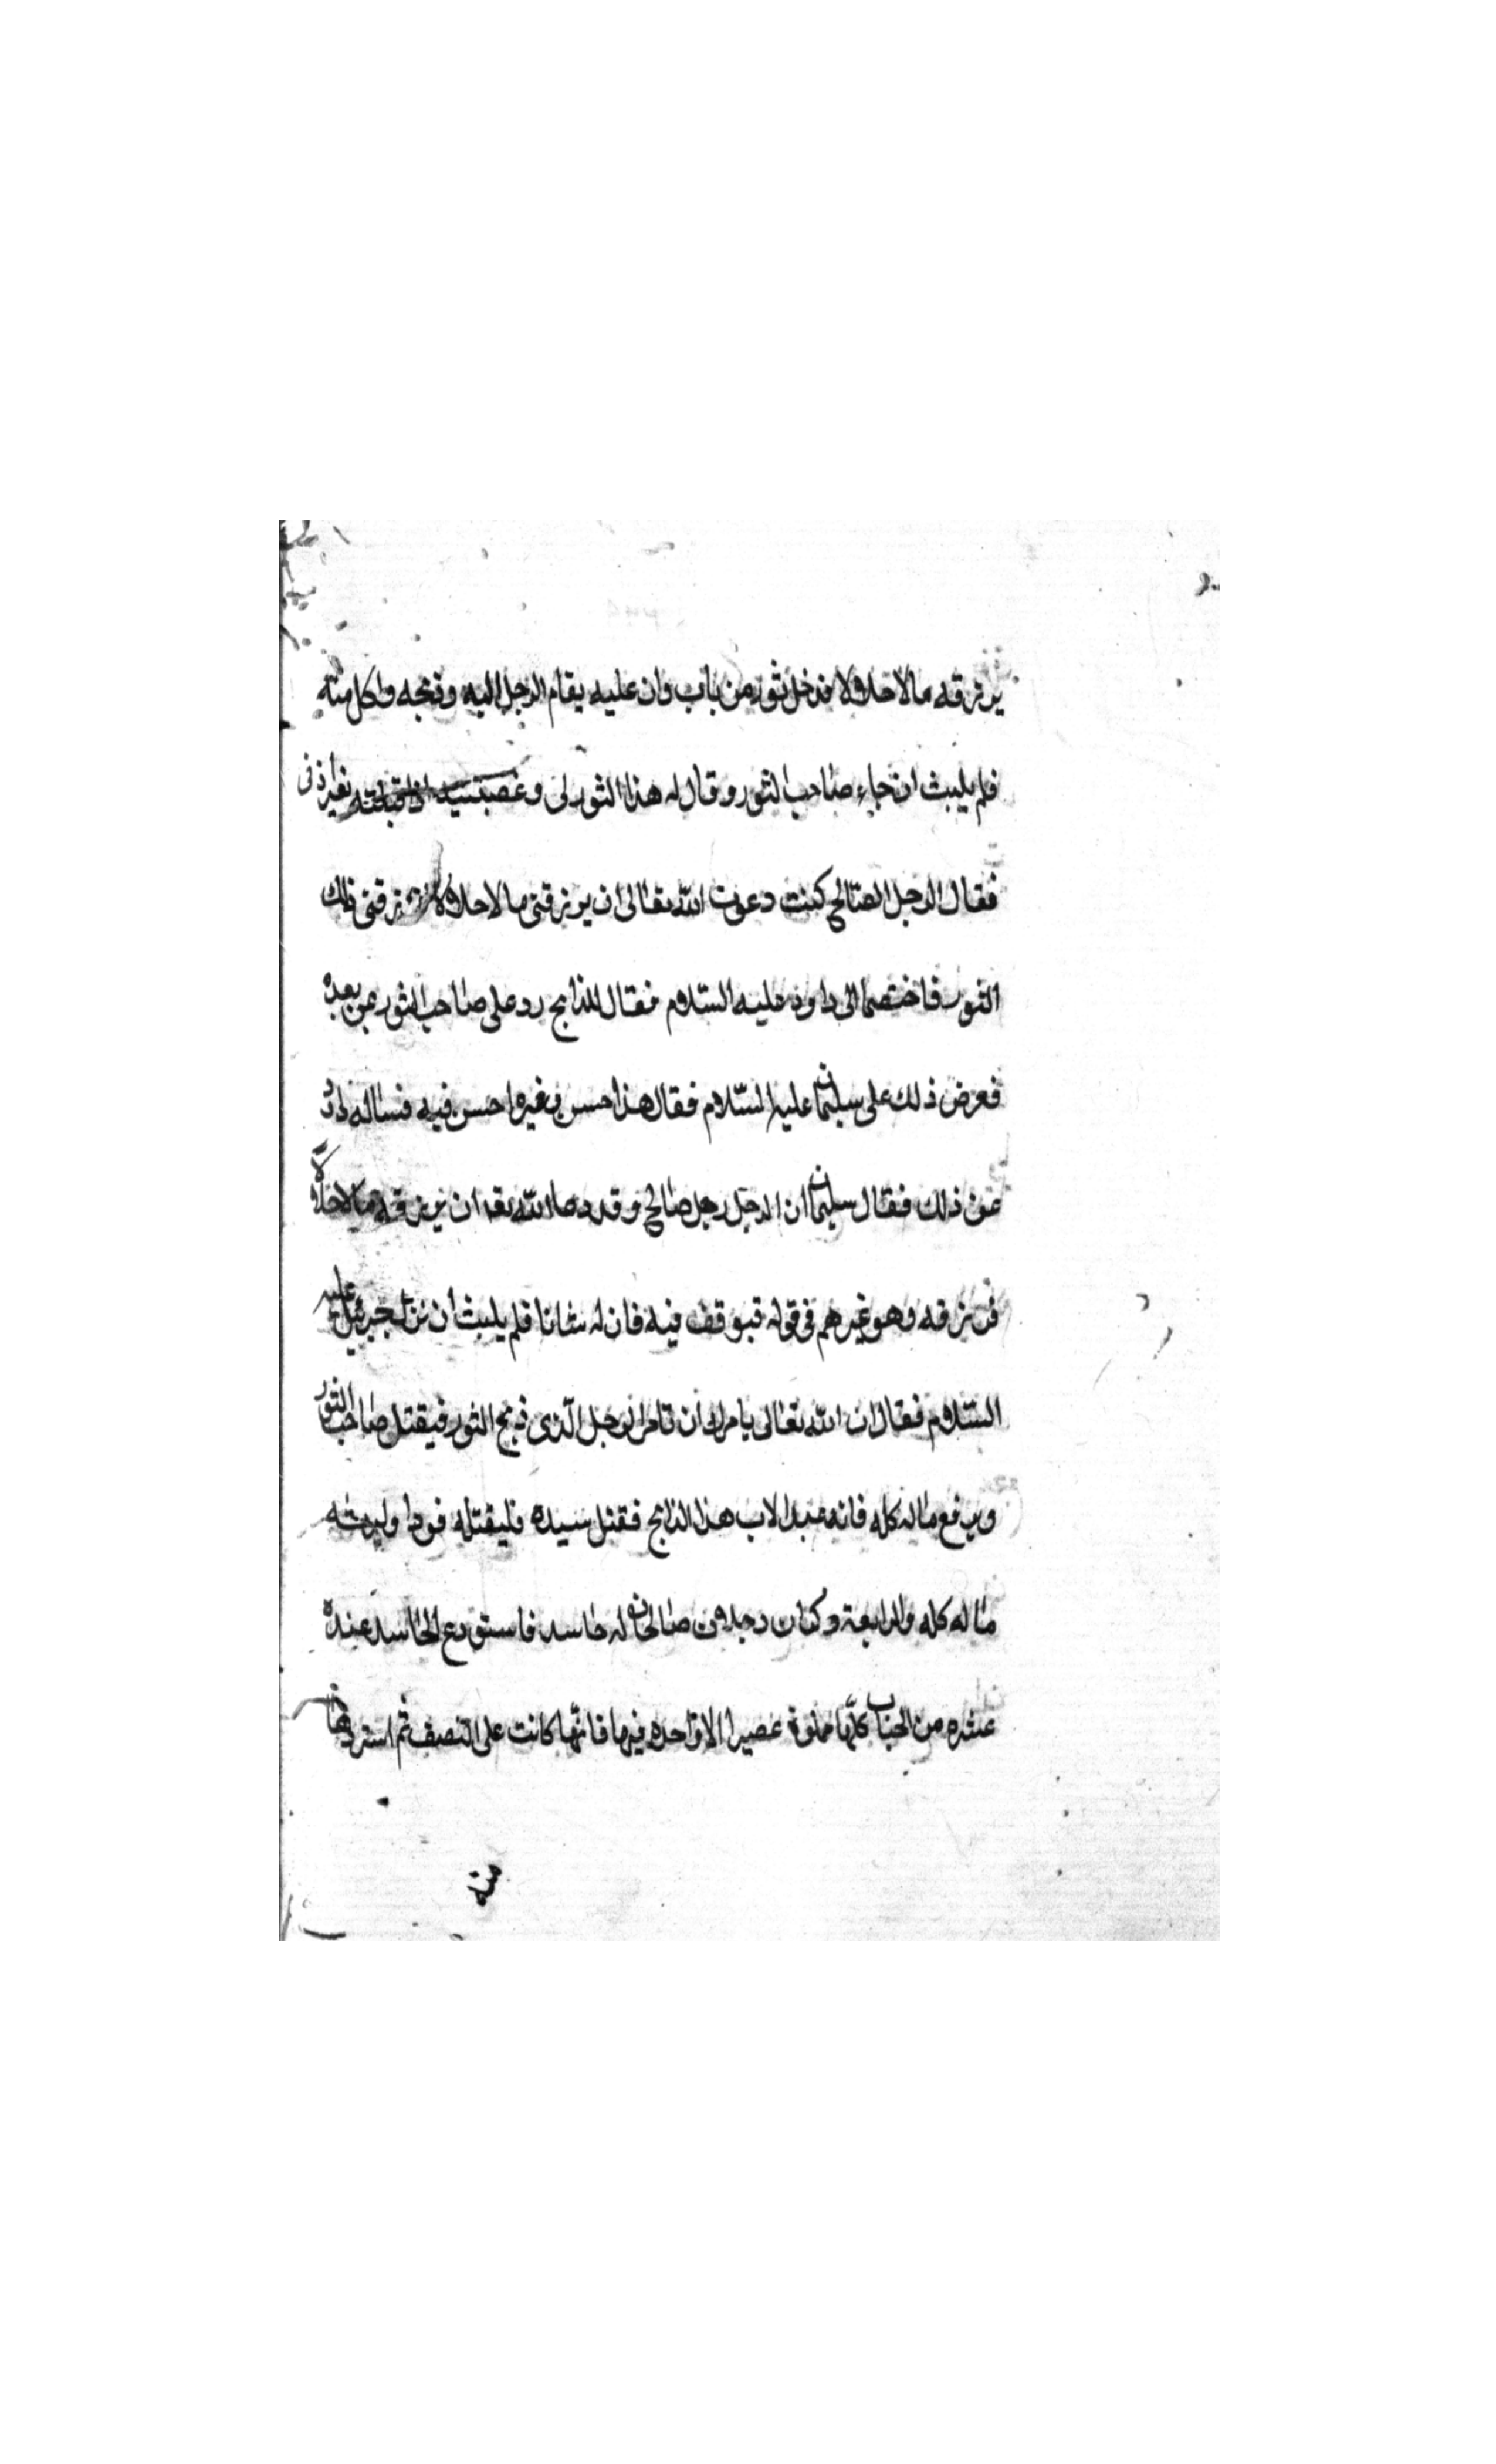 يرزقه مالا حلالا فدخل ثور من باب وان عليه يقام الرجل اليه وذبحه واكل منه
فلم يلبث ان جاء صاحب الثور وقال له هذا الثور لى وغصبتنيه اذا قبلته بغير اذنى
فقال الرجل الصالح كنت دعوت الله تعالى ان يرزقنى مالا حلالا رزقنى ذلك
الثور فاختصما الى داود عليه السلام فقال للذابح رد على صاحب الثور من بعده
فعرض ذلك على سليمان عليه السلام فقال هذا حسن وغيره احسن فيه فساله داود
عن ذلك فقال سليمان ان الرجل رجل صالح وقد دعا الله تعد ان يرزقه مالا حلالا
فرزقه وهو غيرهم فى قوله فيوقف فيه فان له شانا فلم يلبث ان نزل جبرئيل عليه
السلام فقال ان الله تعالى يامرك ان تامر الرجل الذى ذبح الثور فيقتل صاحب الثور
ويرفع ماله كله فانه عبد لاب هذا الذابح فقتل سيده فليقتله قودا وليرثه
ماله كله والرابعة وكان رجلان صالحان له حاسد فاستودع الحاسد عنده
عشره من الحباب كلها مملوة عصيرا الا واحده فيها فانها كانت على النصف ثم استردها
منه